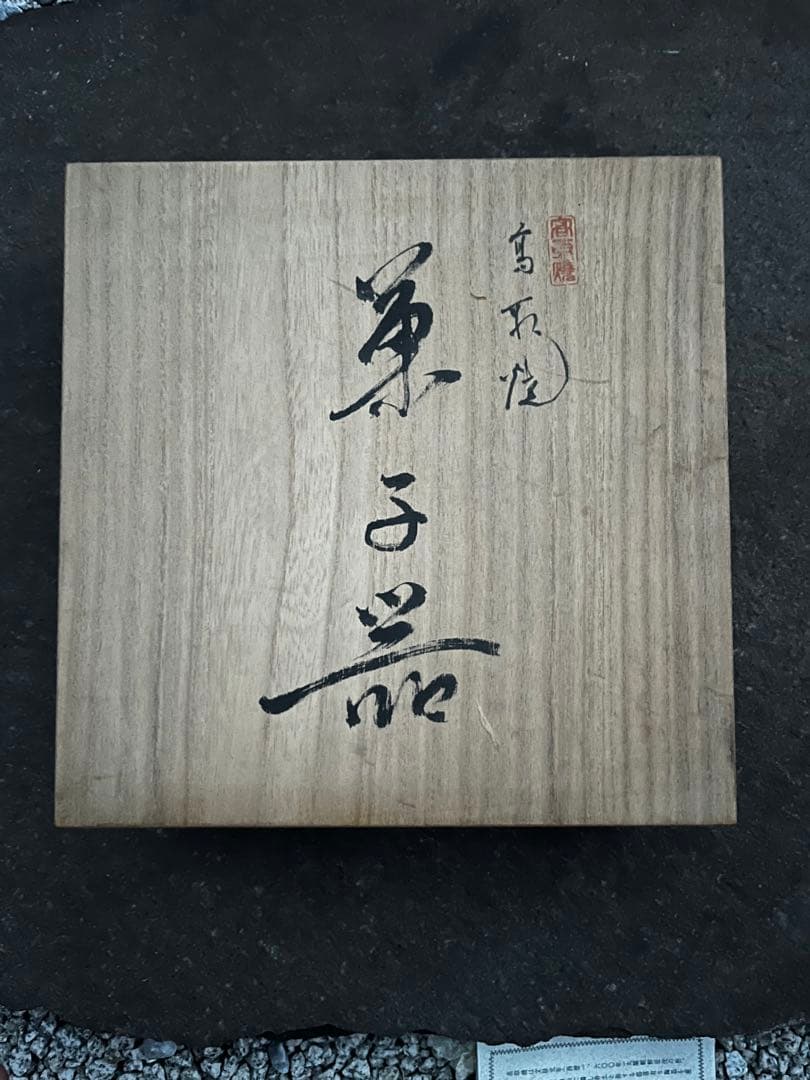 高取焼
菓子器